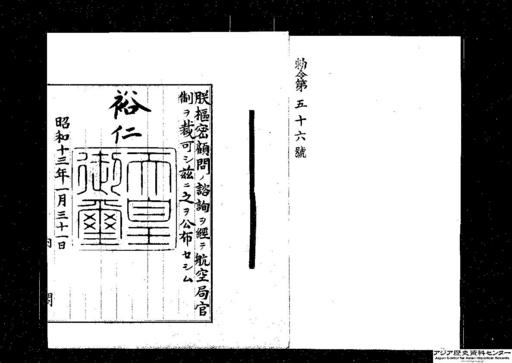 勅令第五十六號
朕樞密顧問ノ諮詢ヲ經テ航空局官
制ヲ裁可シ茲ニ之ヲ公布セシム
裕仁
天皇御璽
昭和十三年一月三十一日
内閣
アジア歴史資料センター
Japan Center for Asian Historical Records